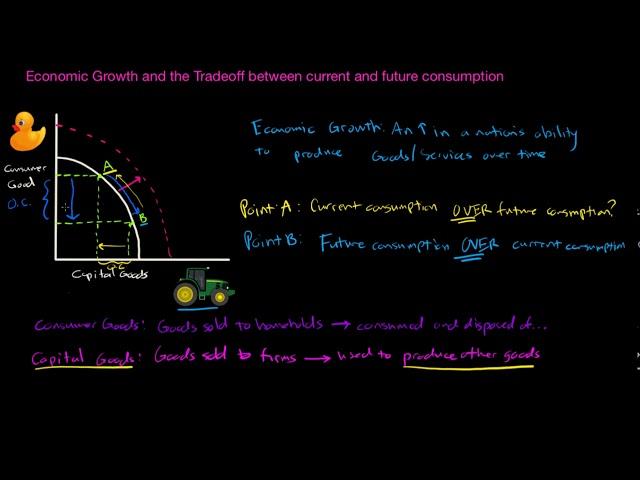 Economic Growth and the Tradeoff between current and future consumption
Economic Growth: An ↑ in a nation's ability
to produce Goods/Services over time
Consumer
Good
O.C.
A
B
Point A: Current consumption OVER future consumption?
Point B: Future consumption OVER current consumption
O.C.
Capital Goods
Consumer Goods: Goods sold to households → consumed and disposed of...
Capital Goods: Goods sold to firms → used to produce other goods